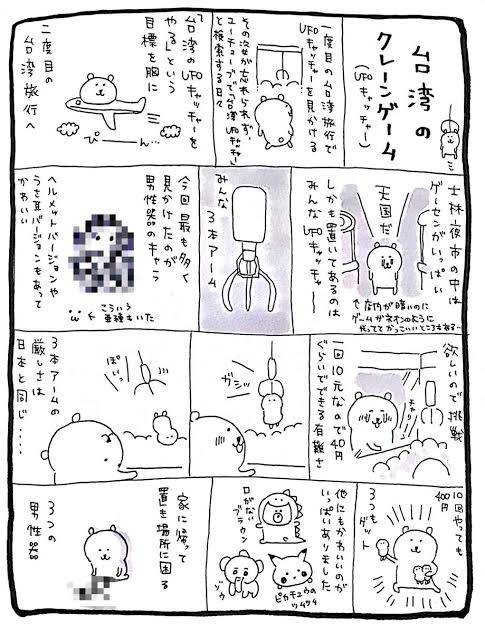 台湾の
クレーンゲーム
(UFOキャッチャー)
一度目の台湾旅行で
UFOキャッチャーを見かける
その姿が忘れられず、
ユーチューブで「台湾UFOキャッチャー」
と検索する日々
台湾のUFOキャッチャーを
やる！という
目標を胸に
ぴーん…
二度目の
台湾旅行へ
士林夜市の中は
ゲーセンがいっぱい
天国だ
しかも置いてあるのは
みんなUFOキャッチャー
店内が暗いのに
ゲームがネオンのように
光っててかっこいいところもある…
みんな
3本アーム
今回最も多く
見かけたのが
男性器のキャラ
ヘルメットバージョンや
うさ耳バージョンもあって
かわいい
こういう
亜種もいた
欲しいので挑戦
チャリ
一回10元なので40円
ぐらいでできる有難さ
ガシッ
ぽいっ
3本アームの
厳しさは
日本と同じ・・・・
10回やっても
400円
3つもゲット
他にもかわいいのが
いっぱいありました
口がない
ブラウン
ゾウ
ピカチュウの
ツムツム
家に帰って
置き場所に困る
3つの
男性器